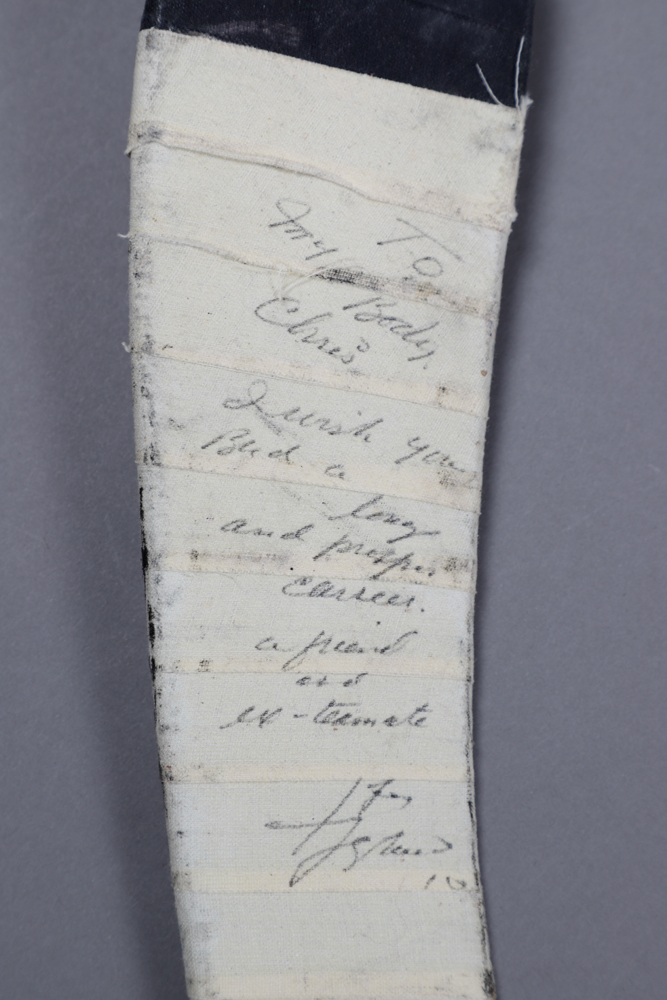 To
my Body
Chris
I wish you
Bud a
long
and prosper
carreer.
a friend
and
ex-teamate
Guy
Lafleur
10